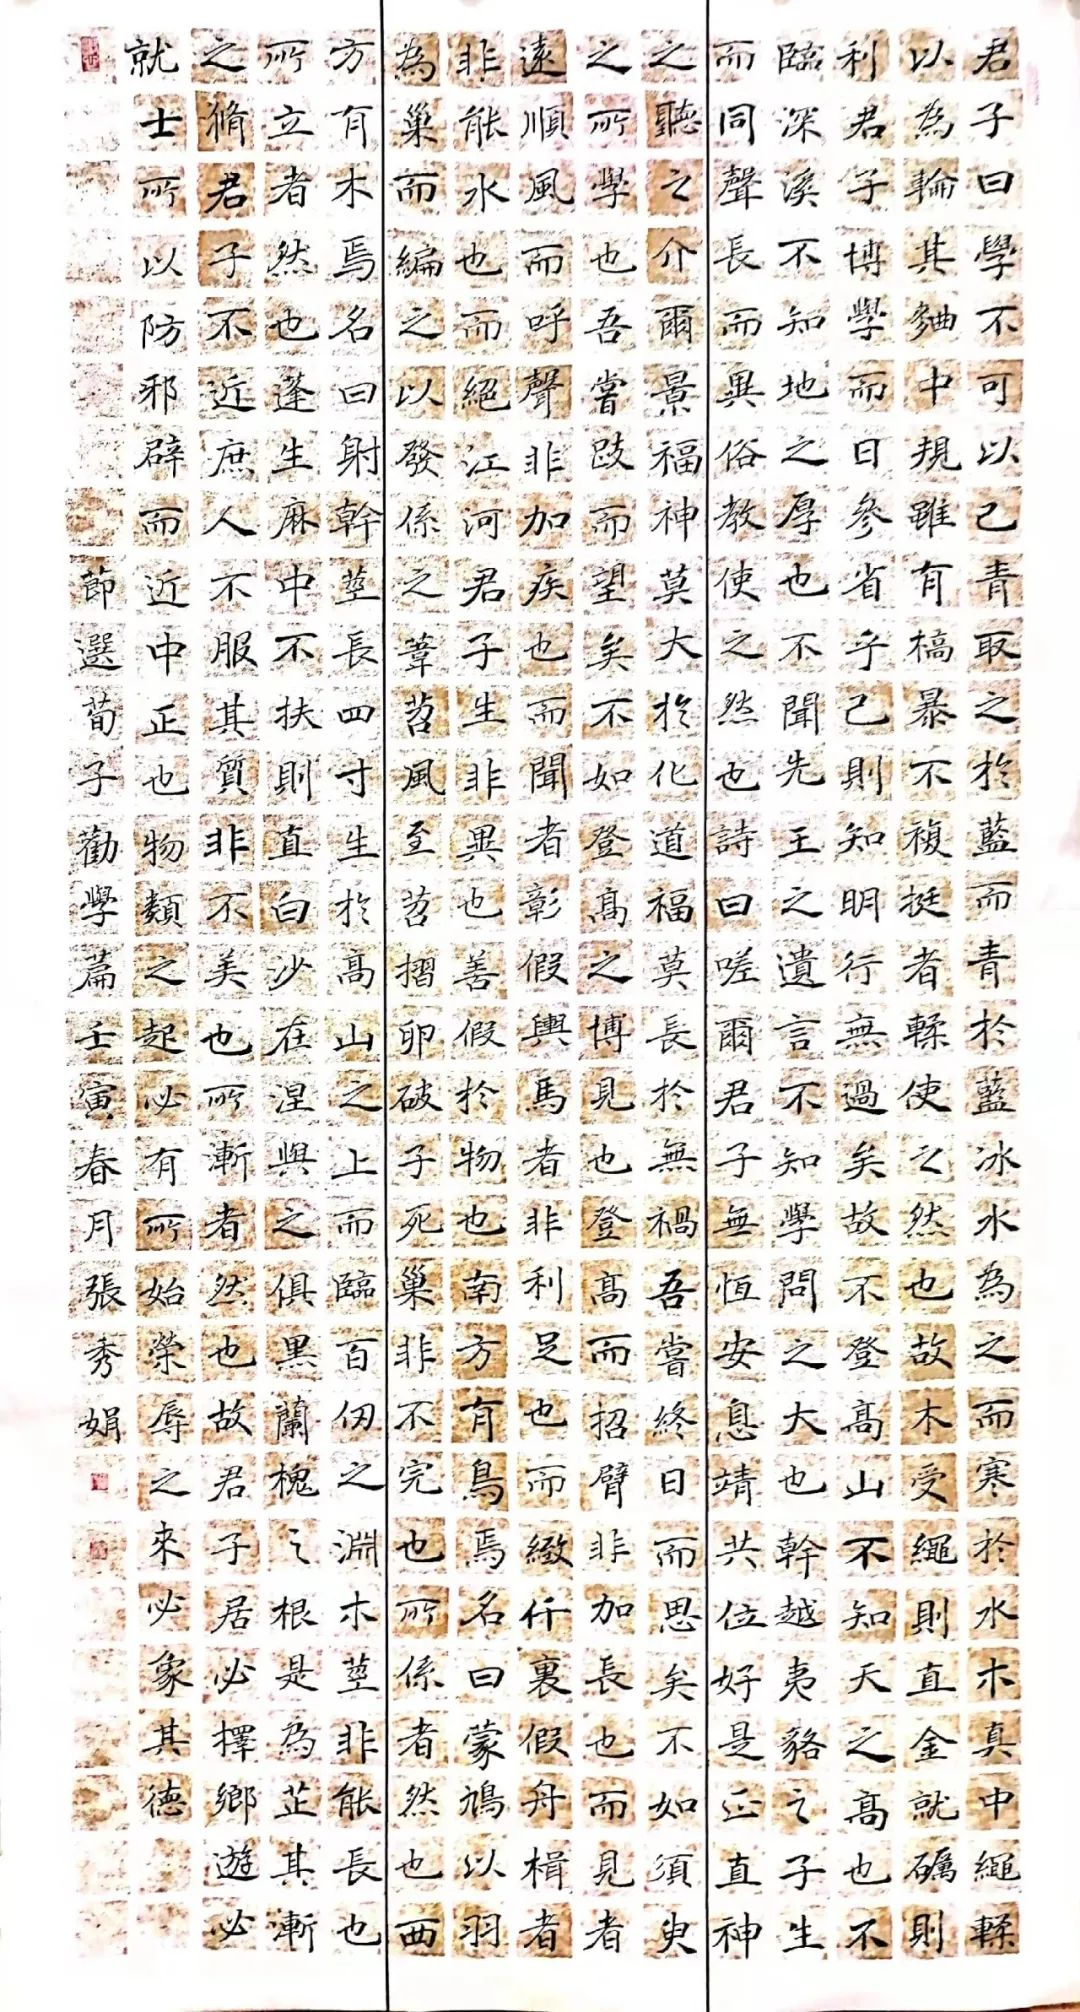 君子曰學不可以己青取之於藍而青於藍冰水為之而寒於水木真中繩輮
以為輪其麯中規雖有槁暴不複挺者輮使之然也故木受繩則直金就礪則
利君子博學而日參省乎己則知明行無過矣故不登高山不知天之高也不
臨深溪不知地之厚也不聞先王之遺言不知學問之大也幹越夷貉之子生
而同聲長而異俗教使之然也詩曰嗟爾君子無恆安息靖共位好是正直神
之聽之介爾景福神莫大於化道福莫長於無禍吾嘗終日而思矣不如須臾
之所學也吾嘗跂而望矣不如登高之博見也登高而招臂非加長也而見者
遠順風而呼聲非加疾也而聞者彰假輿馬者非利足也而緻仟裏假舟楫者
非能水也而絕江河君子生非異也善假於物也南方有鳥焉名曰蒙鳩以羽
為巢而編之以發係之葦苕風至苕摺卵破子死巢非不完也所係者然也西
方有木焉名曰射幹莖長四寸生於高山之上而臨百仞之淵木莖非能長也
所立者然也蓬生麻中不扶則直白沙在涅與之俱黑蘭槐之根是為芷其漸
之脩君子不近庶人不服其質非不美也所漸者然也故君子居必擇鄉遊必
就士所以防邪辟而近中正也物類之起必有所始榮辱之來必象其德
節選荀子勸學篇壬寅春月張秀娟